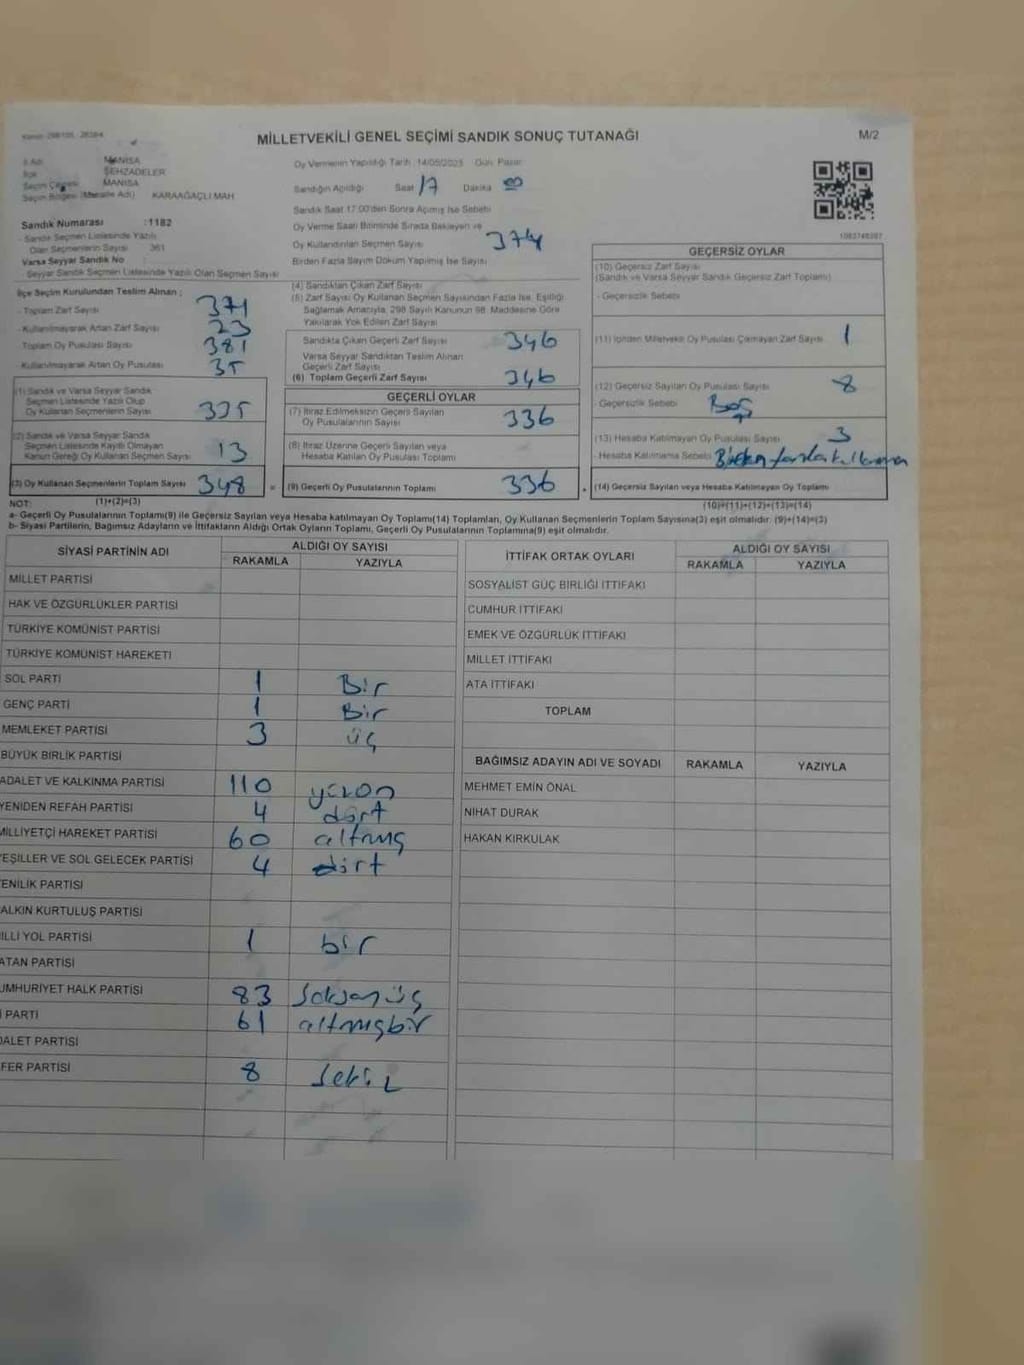 MİLLETVEKİLİ GENEL SEÇİMİ SANDIK SONUÇ TUTANAĞI
M/2
İl Adı MANİSA
İlçe ŞEHZADELER
Seçim Çevresi MANİSA
Seçim Bölgesi (Mahalle Adı) KARAAĞAÇLI MAH
Oy Vermenin Yapıldığı Tarih : 14/05/2023 Gün: Pazar
Sandığın Açıldığı Saat 17 Dakika 00
Sandık Saat 17:00'den Sonra Açılmış İse Sebebi
Oy Verme Saati Bitiminde Sırada Bekleyen ve
Oy Kullandırılan Seçmen Sayısı 374
Birden Fazla Sayım Döküm Yapılmış İse Sayısı
Sandık Numarası : 1182
- Sandık Seçmen Listesinde Yazılı
Olan Seçmenlerin Sayısı 361
Varsa Seyyar Sandık No
- Seyyar Sandık Seçmen Listesinde Yazılı Olan Seçmen Sayısı
İlçe Seçim Kurulundan Teslim Alınan :
- Toplam Zarf Sayısı 371
- Kullanılmayarak Artan Zarf Sayısı 23
Toplam Oy Pusulası Sayısı 381
- Kullanılmayarak Artan Oy Pusulası 35
(1) Sandık ve Varsa Seyyar Sandık
Seçmen Listesinde Yazılı Olup
Oy Kullanan Seçmenlerin Sayısı 335
(2) Sandık ve Varsa Seyyar Sandık
Seçmen Listesinde Kayıtlı Olmayan
Kanun Gereği Oy Kullanan Seçmen Sayısı 13
(3) Oy Kullanan Seçmenlerin Toplam Sayısı 348
(1)+(2)=(3)
(4) Sandıktan Çıkan Zarf Sayısı
(5) Zarf Sayısı Oy Kullanan Seçmen Sayısından Fazla İse, Eşitliği
Sağlamak Amacıyla, 298 Sayılı Kanunun 98. Maddesine Göre
Yakılarak Yok Edilen Zarf Sayısı
Sandıkta Çıkan Geçerli Zarf Sayısı 346
Varsa Seyyar Sandıktan Teslim Alınan
Geçerli Zarf Sayısı
(6) Toplam Geçerli Zarf Sayısı 346
GEÇERLİ OYLAR
(7) İtiraz Edilmeksizin Geçerli Sayılan
Oy Pusulalarının Sayısı 336
(8) İtiraz Üzerine Geçerli Sayılan veya
Hesaba Katılan Oy Pusulası Toplamı
= (9) Geçerli Oy Pusulalarının Toplamı 336
GEÇERSİZ OYLAR
(10) Geçersiz Zarf Sayısı
(Sandık ve Varsa Seyyar Sandık Geçersiz Zarf Toplamı)
- Geçersizlik Sebebi
(11) İçinden Milletvekili Oy Pusulası Çıkmayan Zarf Sayısı 1
(12) Geçersiz Sayılan Oy Pusulası Sayısı 8
- Geçersizlik Sebebi Boş
(13) Hesaba Katılmayan Oy Pusulası Sayısı 3
- Hesaba Katılmama Sebebi Birden fazla kullanma
(14) Geçersiz Sayılan veya Hesaba Katılmayan Oy Toplamı
(10)+(11)+(12)+(13)=(14)
NOT:
a- Geçerli Oy Pusulalarının Toplamı(9) ile Geçersiz Sayılan veya Hesaba katılmayan Oy Toplamı(14) Toplamları, Oy Kullanan Seçmenlerin Toplam Sayısına(3) eşit olmalıdır. (9)+(14)=(3)
b- Siyasi Partilerin, Bağımsız Adayların ve İttifakların Aldığı Ortak Oyların Toplamı, Geçerli Oy Pusulalarının Toplamına(9) eşit olmalıdır.
SİYASİ PARTİNİN ADI ALDIĞI OY SAYISI
RAKAMLA YAZIYLA
MİLLET PARTİSİ
HAK VE ÖZGÜRLÜKLER PARTİSİ
TÜRKİYE KOMÜNİST PARTİSİ
TÜRKİYE KOMÜNİST HAREKETİ
SOL PARTİ 1 Bir
GENÇ PARTİ 1 Bir
MEMLEKET PARTİSİ 3 üç
BÜYÜK BİRLİK PARTİSİ
ADALET VE KALKINMA PARTİSİ 110 yüzon
YENİDEN REFAH PARTİSİ 4 dört
MİLLİYETÇİ HAREKET PARTİSİ 60 altmış
YEŞİLLER VE SOL GELECEK PARTİSİ 4 dört
ENİLİK PARTİSİ
ALKIN KURTULUŞ PARTİSİ
İLLİ YOL PARTİSİ 1 bir
ATAN PARTİSİ
UMHURİYET HALK PARTİSİ 83 Seksen üç
İ PARTİ 61 altmışbir
DALET PARTİSİ
FER PARTİSİ 8 Sekiz
İTTİFAK ORTAK OYLARI ALDIĞI OY SAYISI
RAKAMLA YAZIYLA
SOSYALİST GÜÇ BİRLİĞİ İTTİFAKI
CUMHUR İTTİFAKI
EMEK VE ÖZGÜRLÜK İTTİFAKI
MİLLET İTTİFAKI
ATA İTTİFAKI
TOPLAM
BAĞIMSIZ ADAYIN ADI VE SOYADI RAKAMLA YAZIYLA
MEHMET EMİN ÖNAL
NİHAT DURAK
HAKAN KIRKULAK